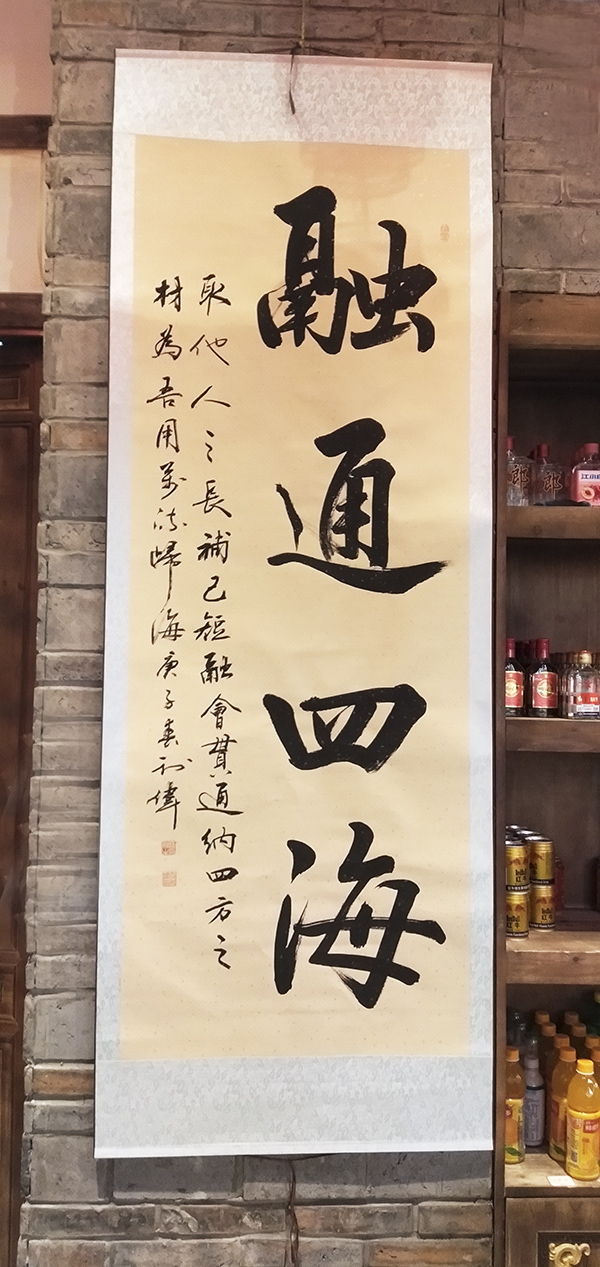 融通四海
取他人之長補己短融會貫通納四方之
材為吾用萬流歸海庚子春利偉
郎
郎